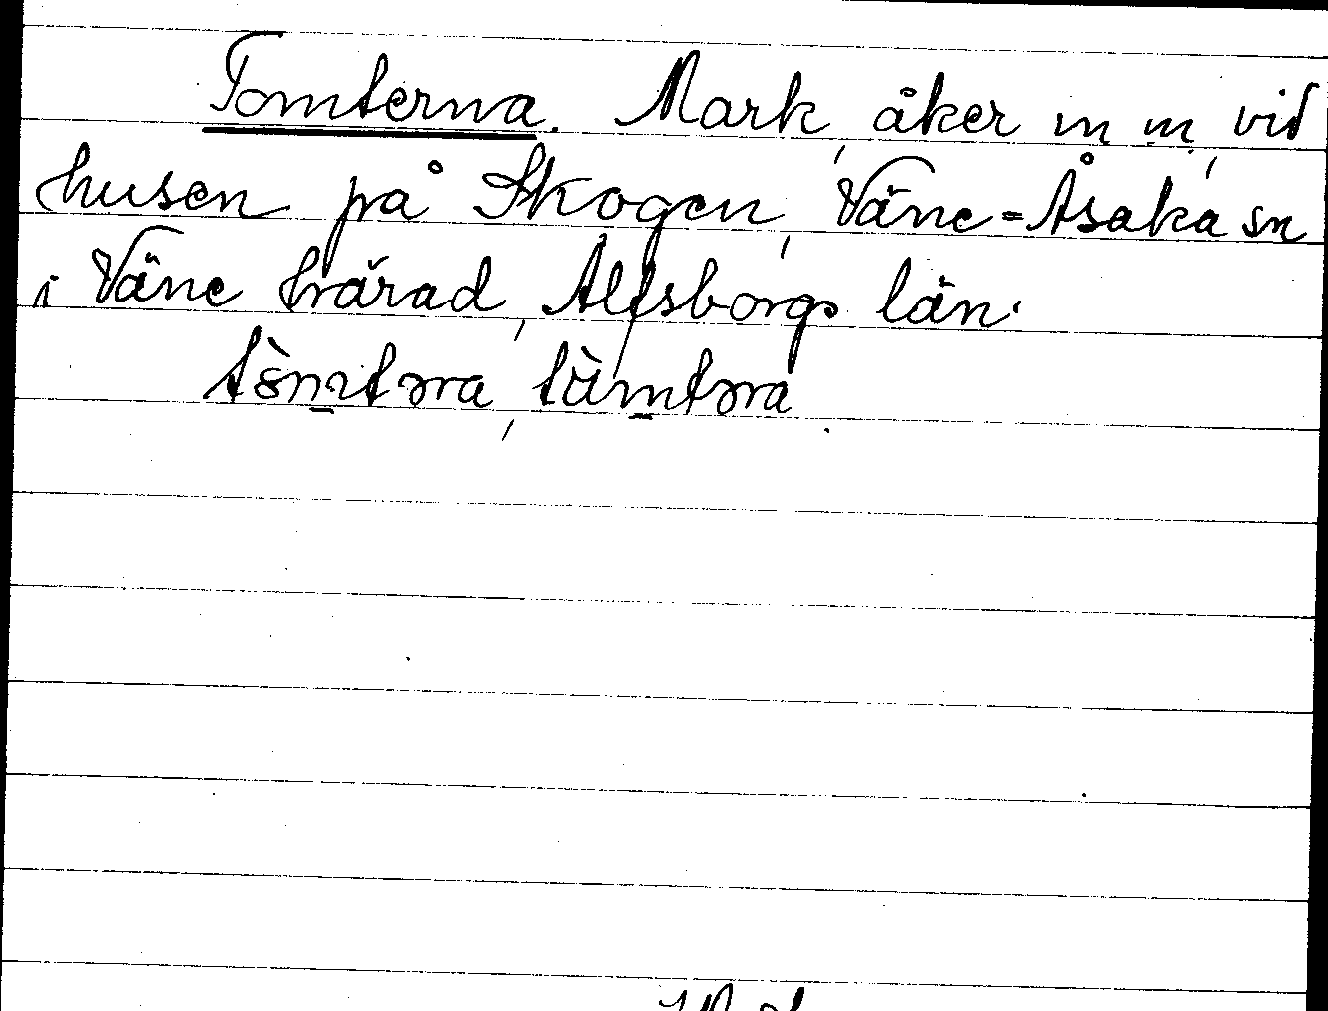 Tomterna. Mark, åker m. m., vid
husen på Skogen, Väne-Åsaka sn
i Väne härad, Älfsborgs län.